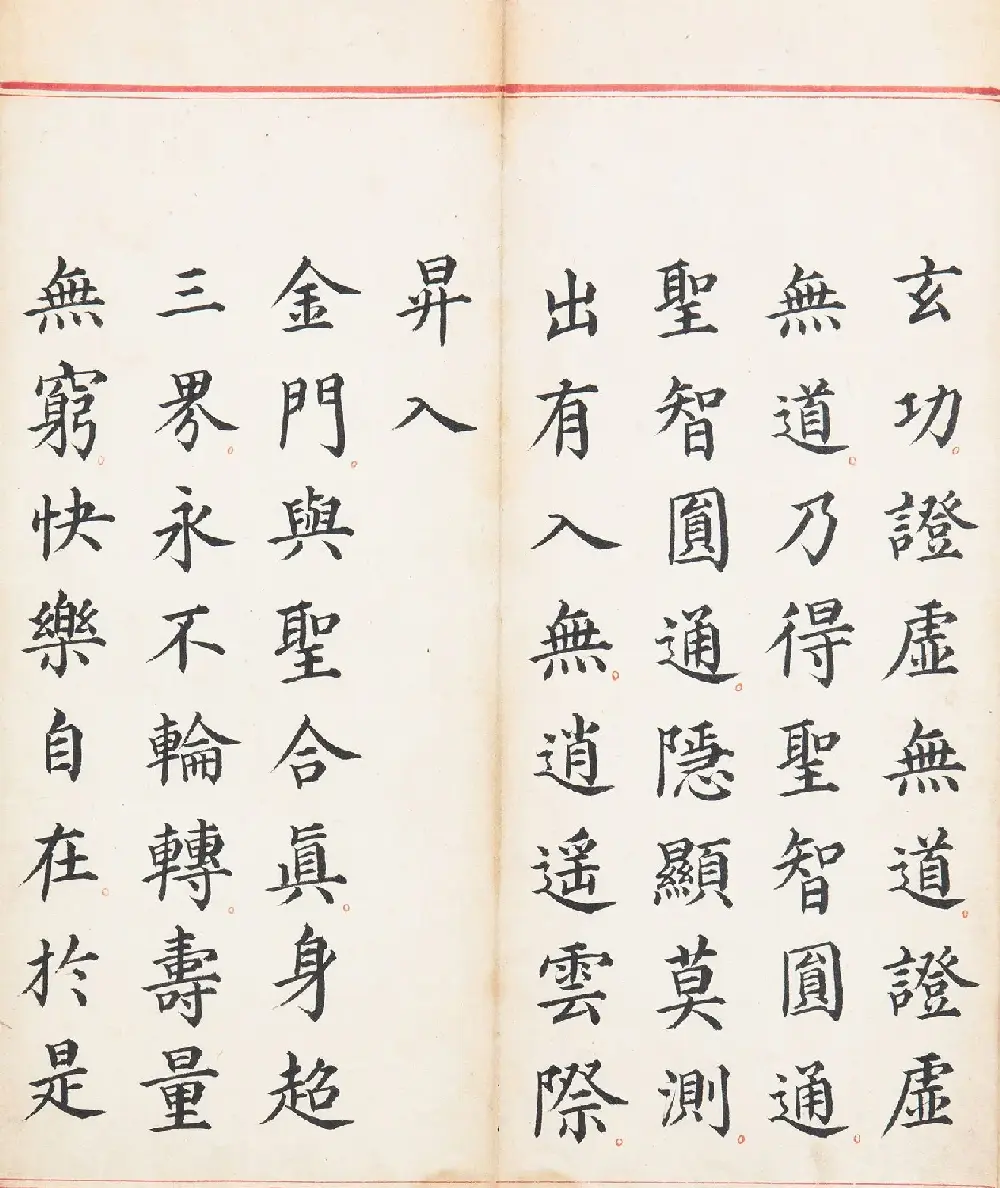 玄功。證虛無道。證虛
無道。乃得聖智圓通。
聖智圓通。隱顯莫測。
出有入無。逍遥雲際。
昇入
金門。與聖合眞。身超
三界。永不輪轉。壽量
無窮。快樂自在。於是